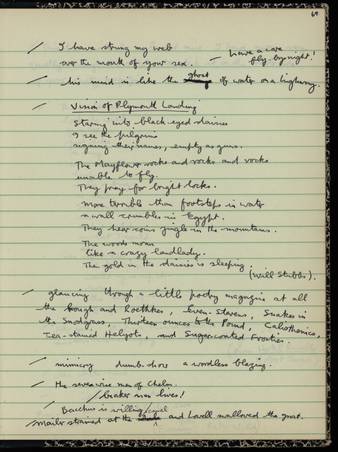 60
I have strung my web
over the mouth of your sex. — have a care
fly-by-night!
his mind is like the ghost of water on a highway.
Vision of Plymouth Landing
Staring into black-eyed daisies
I see the pilgrims
signing their names, empty as guns.
The Mayflower rocks and rocks and rocks
unable to fly.
They pray for bright locks.
more terrible than footsteps in water
a wall crumbles in Egypt.
They hear coins jingle in the mountains.
The woods moan
like a crazy landlady.
The gold in the daisies is sleeping.
(Will Stubbs).
glancing through a little poetry magazine at all
the Gough and Roethkes, Even-Stevens, Snakes in
the Snodgrass, Thirteen ounces to the Pound,
Tea-stained Heligots, and Sugarcoated Frosties.
mimicry dumb-show a wordless blazing.
the seven wise men of Chelm.
/ lives!
Bacchus is willing/
Mailer stormed at the and Lowell wallowed the